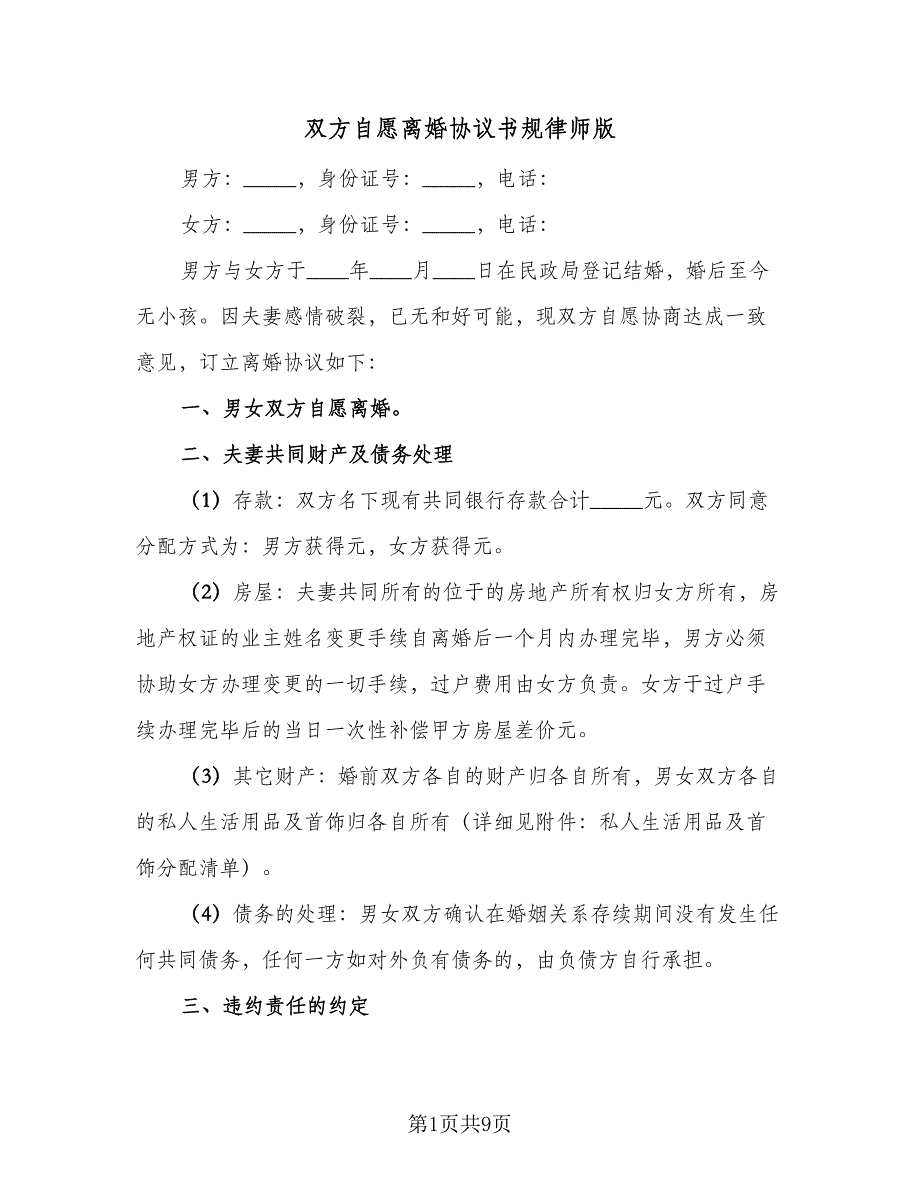 双方自愿离婚协议书规律师版
男方：_____，身份证号：_____，电话：
女方：_____，身份证号：_____，电话：
男方与女方于____年____月____日在民政局登记结婚，婚后至今
无小孩。因夫妻感情破裂，已无和好可能，现双方自愿协商达成一致
意见，订立离婚协议如下：
一、男女双方自愿离婚。
二、夫妻共同财产及债务处理
（1）存款：双方名下现有共同银行存款合计_____元。双方同意
分配方式为：男方获得元，女方获得元。
（2）房屋：夫妻共同所有的位于的房地产所有权归女方所有，房
地产权证的业主姓名变更手续自离婚后一个月内办理完毕，男方必须
协助女方办理变更的一切手续，过户费用由女方负责。女方于过户手
续办理完毕后的当日一次性补偿甲方房屋差价元。
（3）其它财产：婚前双方各自的财产归各自所有，男女双方各自
的私人生活用品及首饰归各自所有（详细见附件：私人生活用品及首
饰分配清单）。
（4）债务的处理：男女双方确认在婚姻关系存续期间没有发生任
何共同债务，任何一方如对外负有债务的，由负债方自行承担。
三、违约责任的约定
第1页共9页